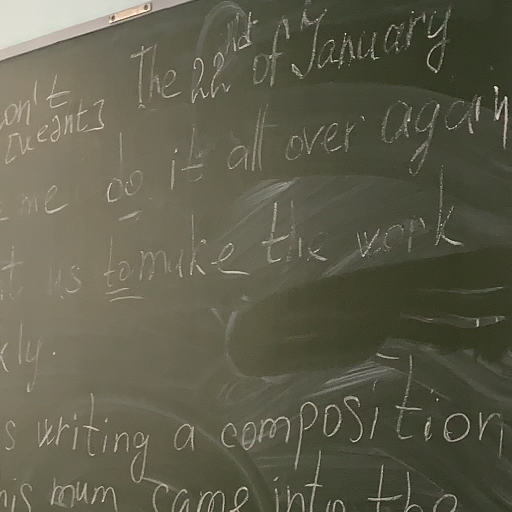 The 22nd of January
on't
[veənt]
me do it all over again
t us to make the work
kly.
s writing a composition
his mum came into the